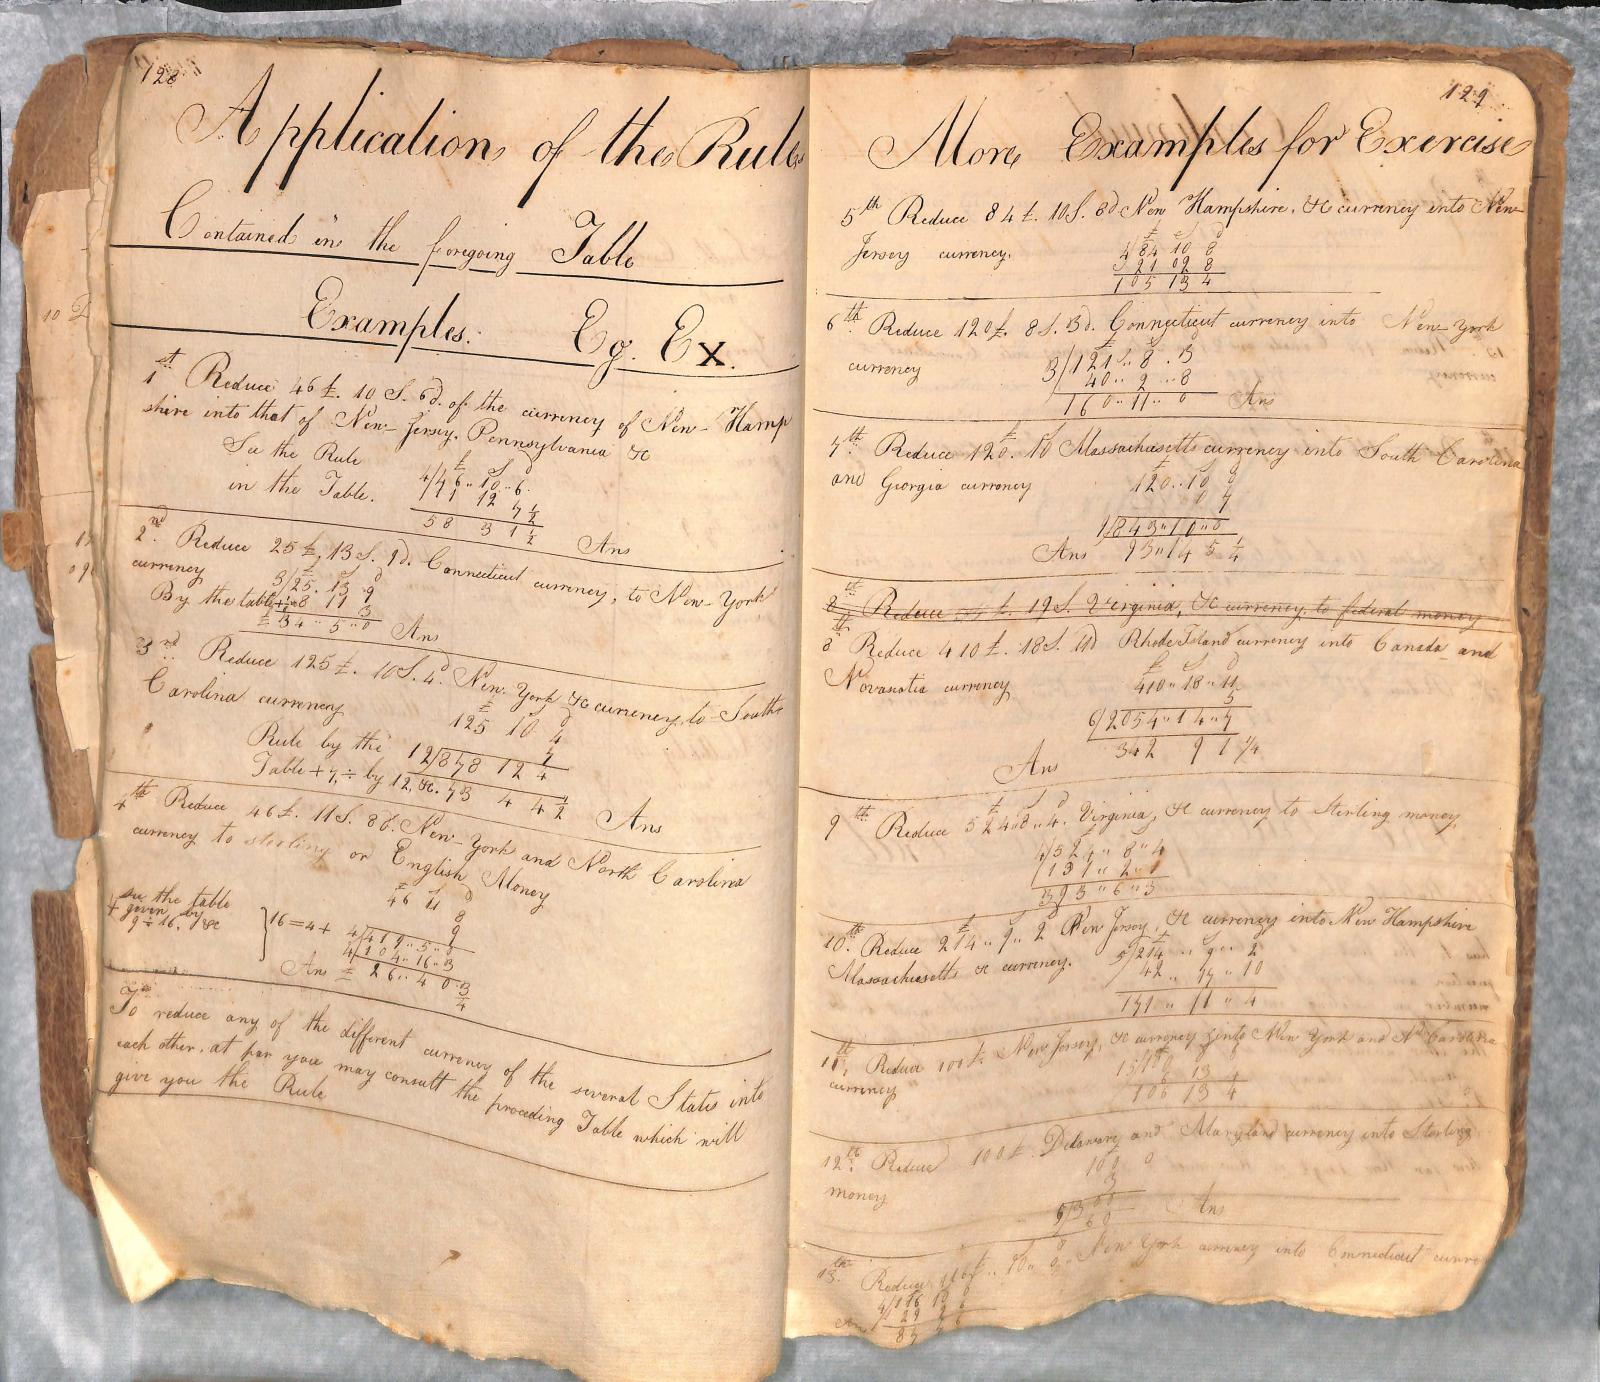 128
Application of the Rules
Contained in the foregoing Table
Examples. Eg. Ex.
1st Reduce 46£. 10S. 6d. of the currency of New-Hamp
shire into that of New-Jersey. Pennsylvania &c
See the Rule £ S d
in the Table. 4/46.. 10.. 6.
11 12 7 1/2
58 3 1 1/2 Ans
2nd Reduce 25£. 13S. 9d. Connecticut currency, to New-York
currency £ S d
3/25. 13 9
By the table + 1/3 = 8 11 3
= 34.. 5.. 0 Ans
3rd Reduce 125£. 10S. 4d. New-York &c currency, to South
Carolina currency £ S d
125 10 4
7
Rule by the 12/878 12 4
Table + 7, ÷ by 12, &c. 73 4 4 1/2 Ans
4th Reduce 46£. 11S. 8d. New-York and North Carolina
currency to sterling or English Money
£ S d
46 11 8
9
see the table
given by
9 ÷ 16. &c } 16 = 4 + 4/419.. 5.. 0
4/104.. 16.. 3
Ans = 26.. 4 0 3/4
To reduce any of the different currency of the several States into
each other, at par you may consult the preceding Table which will
give you the Rule
129
More Examples for Exercise
5th Reduce 84£. 10S. 8d New Hampshire, &c currency into New-
Jersey currency. £ S d
4/84 10 8
21 02 8
105 13 4
6th Reduce 120£. 8S. 3d. Connecticut currency into New-York
currency
3/121.. 8.. 3
40.. 2.. 8
160.. 11.. 0 Ans
7th Reduce 120£. 10 Massachusetts currency into South Carolina
and Georgia currency £ S d
120.. 10 0
0 7
843.. 10.. 0
Ans 93.. 14 5 1/4
8th Reduce £. 19S. Virginia, &c currency, to federal money
8th Reduce 410£. 18S. 11d Rhode Island currency into Canada and
Novascotia currency £ S d
410.. 18.. 11
5
6/2054.. 14.. 7
Ans 342 9 1 1/4
9th Reduce £ S d 524.. 8.. 4. Virginia, &c currency to Sterling money
4/524.. 8.. 4
131.. 2.. 1
393.. 6.. 3
10th Reduce 214.. 9.. 2 New Jersey, &c currency into New Hampshire
Massachusetts &c currency. 5/214.. 9.. 2
42.. 17.. 10
171.. 11.. 4
11th Reduce 100£. New Jersey, &c currency into New York and Nth Carolina
currency
6 13 4
106 13 4
12th Reduce 100£. Delaware and Maryland currency into Sterling
money
100 0
3
5/300
60 Ans
13th Reduce 116£.. 10.. 0.. New York currency into Connecticut curre
4/116 10 0
29 2 6
87 7 6